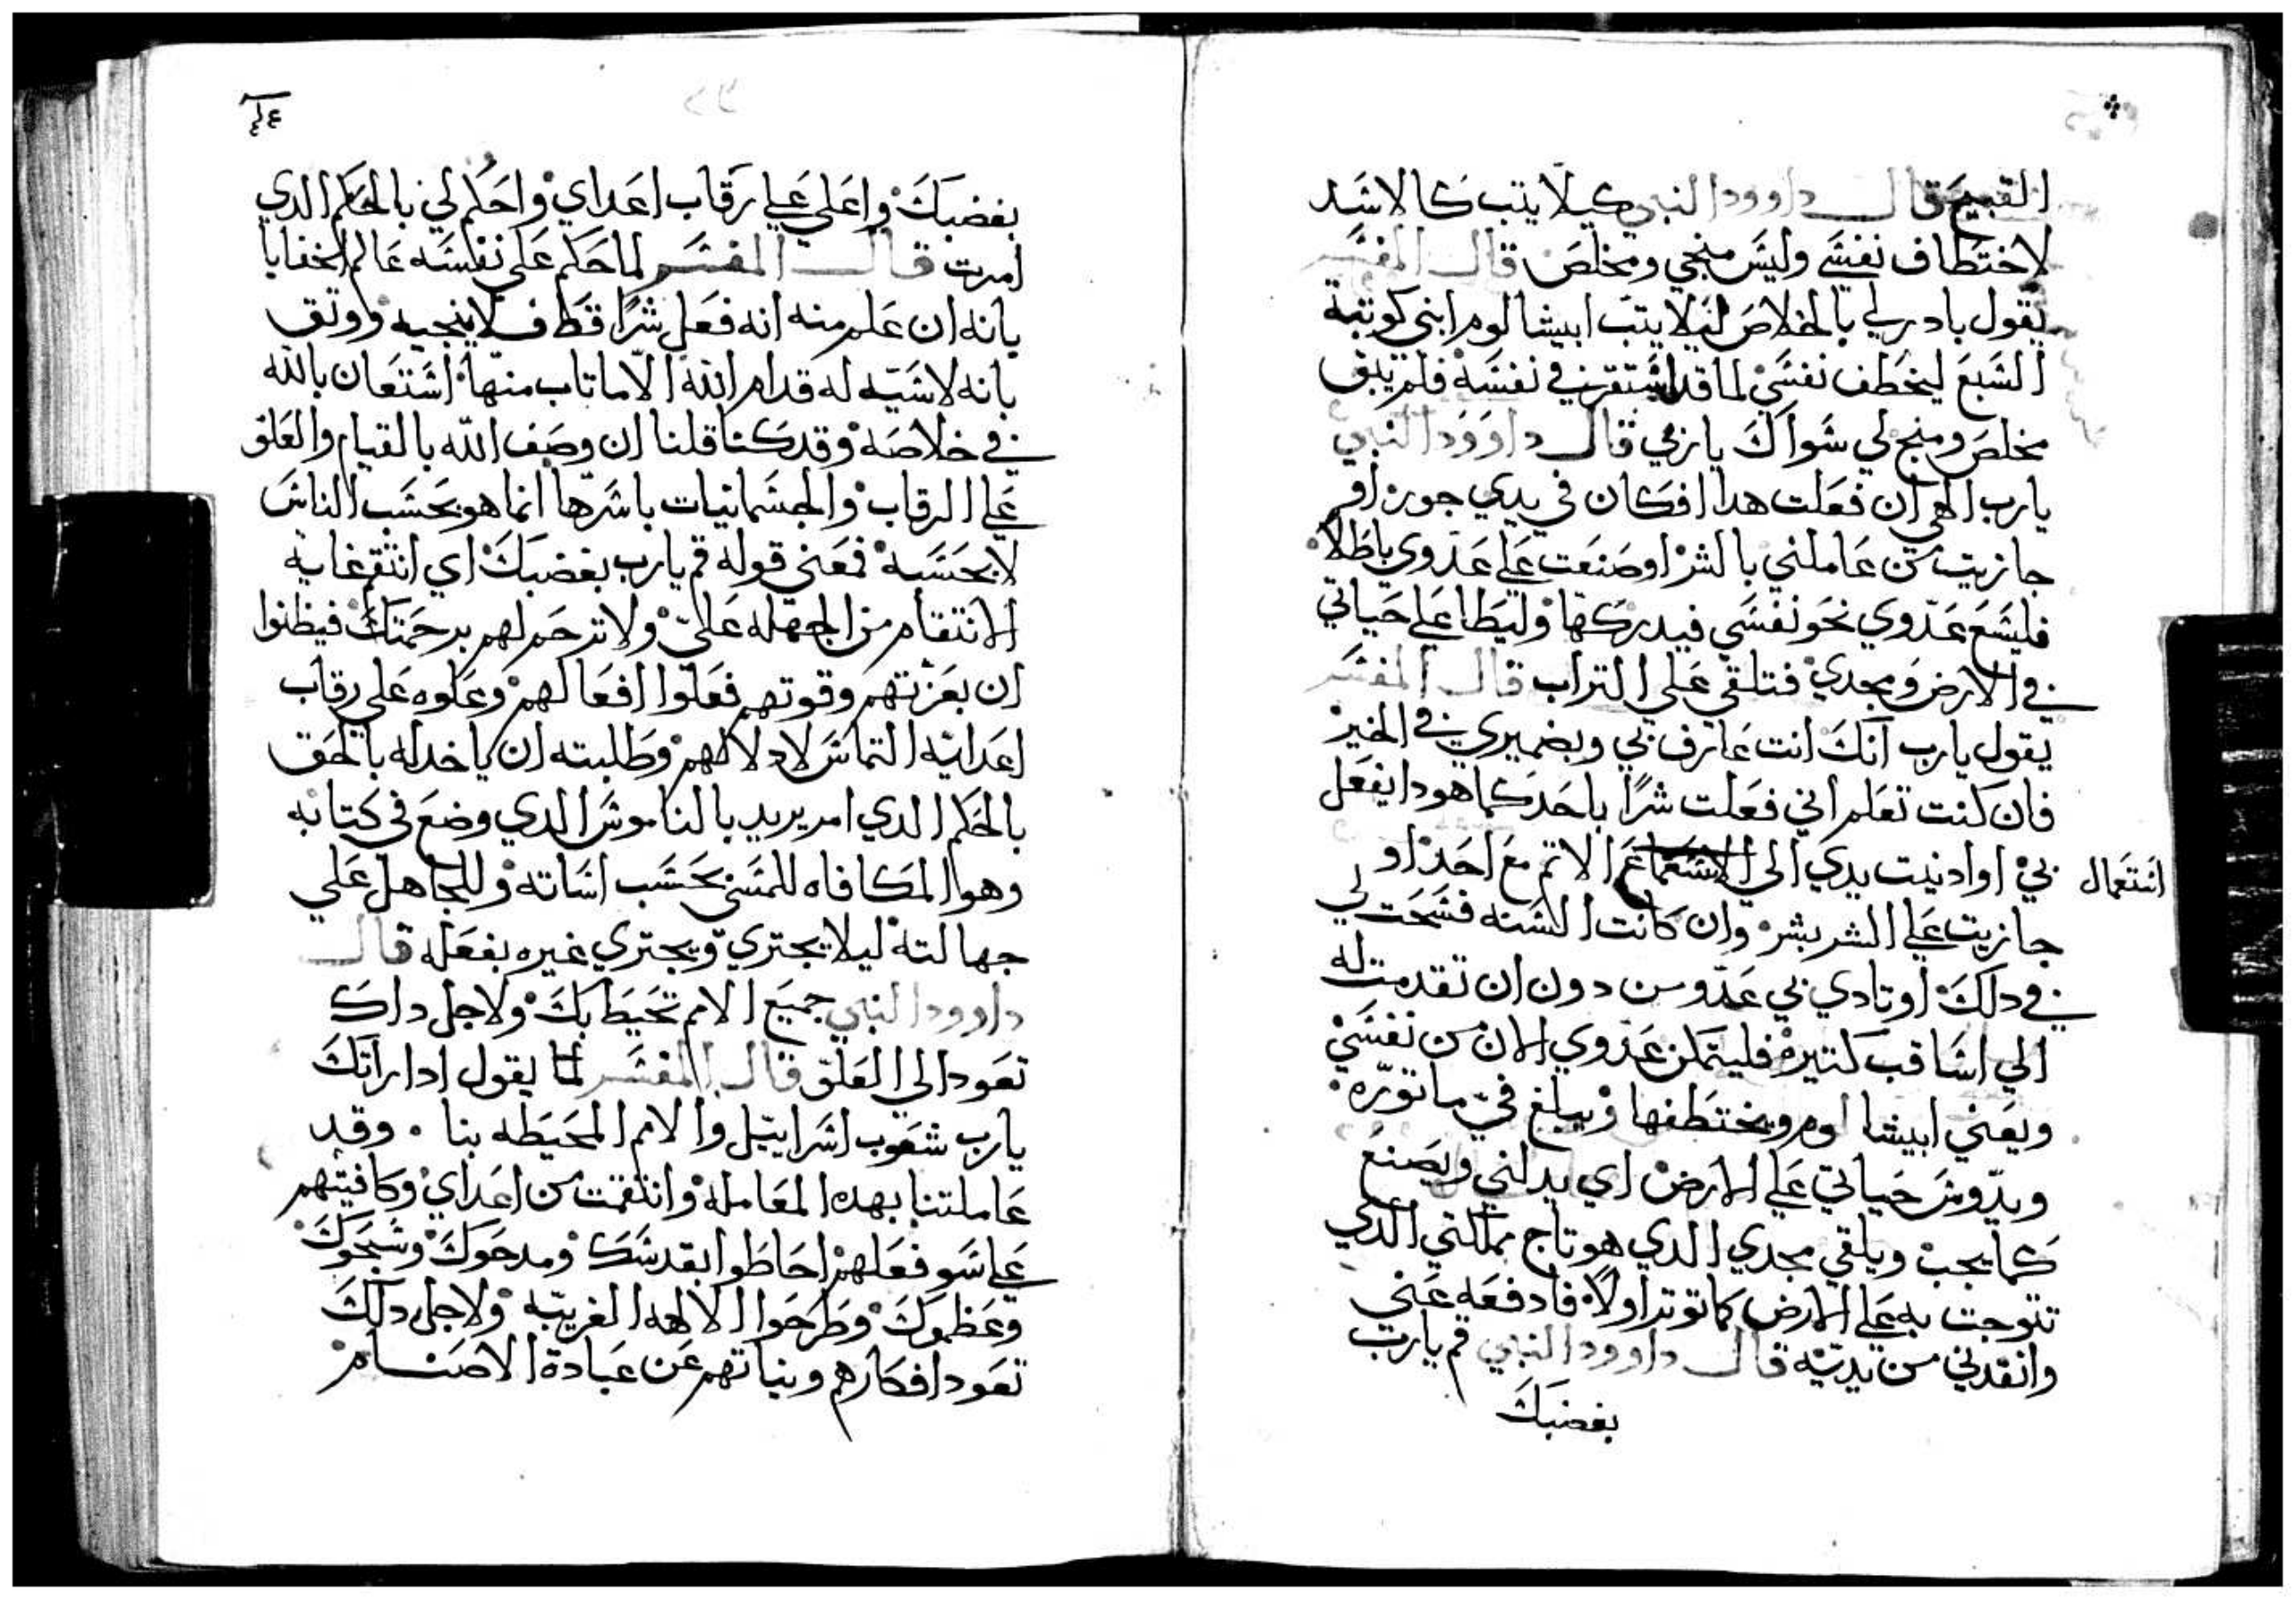 القبيح قال داوود النبي كيلا يتب كالاشد
لاختطاف نفشي وليش منجي ومخلص قال المفشر
يقول بادر لي بالخلاص ليلا يتب ابيشالوم ابني كوتبة
الشبع ليخطف نفشي لما قد اشتقر في نفشه فلم يبق
مخلص ومنج لي شواك يا ربي قال داوود النبي
يارب الهي ان فعلت هدا افكان في يدي جور او
جازيت من عاملني بالشر او صنعت علي عدوي باطلا
فليشع عدوي نحو نفشي فيدركها وليطا علي حياتي
في الارض ومجدي فتلقي علي التراب قال المفشر
يقول يارب انك انت عارف بي وبضميري في الخير
فان كنت تعلم اني فعلت شرا باحد كما هودا يفعل
بي او ادنيت يدي الي الاتم مع احد او
انتعمال
جازيت علي الشر بشر وان كانت الشنه فشحت لي
في دلك او تادي بي عدو من دون ان تقدمت له
الي اشاقب كتيره فليتمكن عدوي الان من نفشي
ويعني ابيشالوم ويختطفها ويبلغ في ما توره
ويدوش حياتي علي الارض اي يدلني ويصنع
كما يجب ويلقي مجدي الدي هو تاج مملكتي الدي
تتوجت به علي الارض كما توتر اولا فادفعه عني
وانقدني من يديه قال داوود النبي قم يارب
بغضبك
٤٤
بغضبك واعلي علي رقاب اعداي واحكم لي بالحكم الدي
امرت قال المفشر لما حكم علي نفشه عالم الخفايا
بانه ان علم منه انه فعل شرا قط ف لا ينجيه ووتق
بانه لا شيه له قدام الله الا ما تاب منها اشتعان بالله
في خلاصه وقد كنا قلنا ان وصف الله بالقيام والعلو
علي الرقاب والجشمانيات باشرها انما هو بحشب الناش
لا بحشبه فمعني قوله قم يارب بغضبك اي انتقم غاية
الانتقام من الجهله علي ولا ترحم لهم برحمتك فيظنوا
ان بعزتهم وقوتهم فعلوا افعالهم وعلوه علي رقاب
اعدايه التماش لادلالهم وطلبته ان ياخد له بالحق
بالحكم الدي امر يريد بالناموش الدي وضع في كتابه
وهو المكافاه للمشي بحشب اشاته وللجاهل علي
جهالته ليلا يجتري ويجتري غيره بفعله قال
داوود النبي جميع الامم تحيط بك ولاجل داك
تعود الي العلو قال المفشر لما يقول ادا راتك
يارب شعوب اشراييل والامم المحيطه بنا . وقد
عاملتنا بهده المعامله وانتقمت من اعداي وكافيتهم
علي شو فعلهم احاطوا بقدشك ومدحوك وشبحوك
وعظموك وطرحوا الالهه الغريبه ولاجل دلك
تعود افكارهم ونياتهم عن عبادة الاصنام